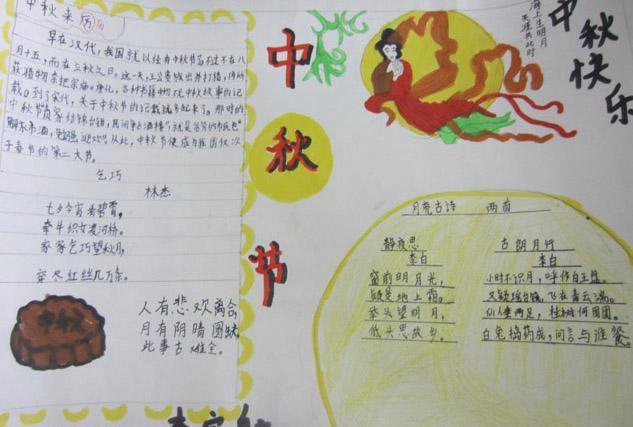 中秋来历
早在汉代，我国就以经有中秋节
月十五，而在立秋之日。这一天，王公贵族出外打猎，得
获猎物宗把宗庙。唐化，各种书籍中
载。到了宋代，关于中秋节的记载就多起来了。那时的
中秋节贵家结饰台榭，民间争占酒楼"，就是
解不市酒，勉强迎欢"。从此，中秋节便成为我国仅次
于春节的第二大节。
乞巧
林杰
七夕今宵看碧霄，
牵牛织女渡河桥。
家家乞巧望秋月，
穿尽红丝几万条。
中秋
人有悲欢离合，
月有阴晴圆缺，
此事古难全。
中
秋
节
海上生明月
天涯共此时
中秋快乐
月亮古诗 两首
静夜思
李白
窗前明月光，
疑是地上霜。
举头望明月，
低头思故乡。
古朗月行
李白
小时不识月，呼作白玉盘。
又疑瑶台镜，飞在青云端。
仙人垂两足，桂树何团团。
白兔捣药成，问言与谁餐。